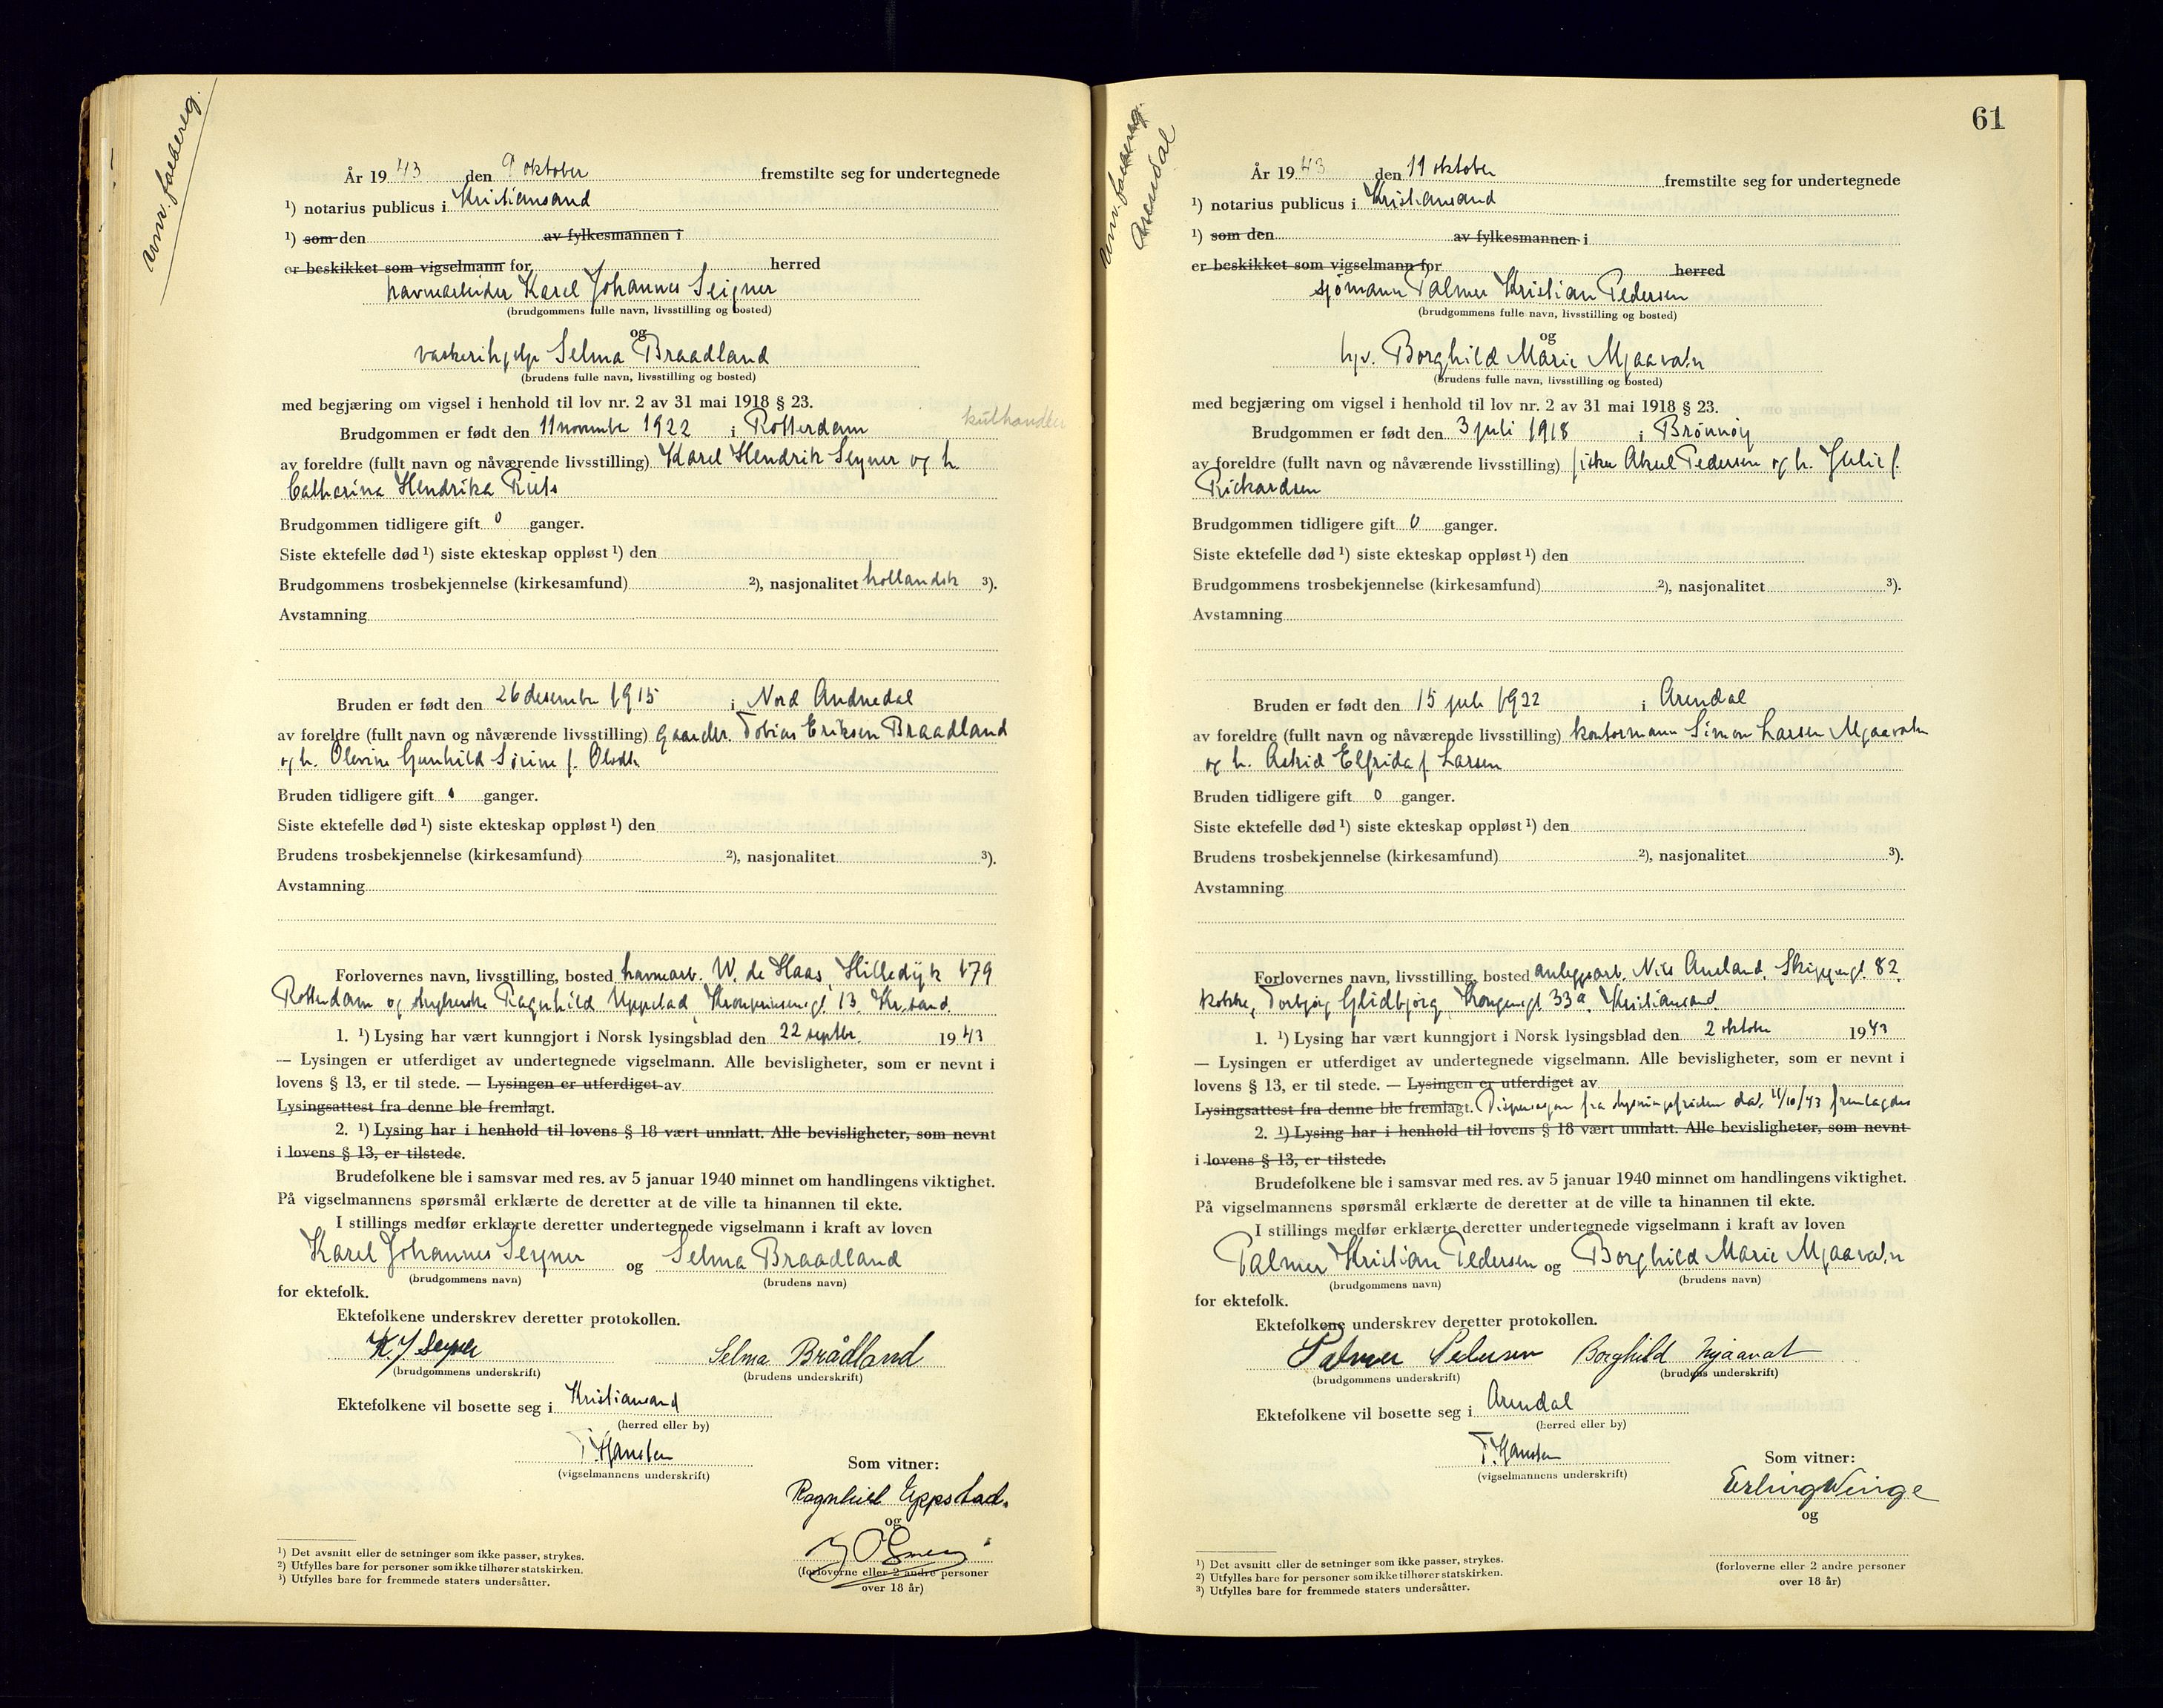 År 1943 den 9 oktober fremstilte seg for undertegnede
¹) notarius publicus i Kristiansand
¹) som den av fylkesmannen i
er beskikket som vigselmann for herred
havnearbeider Karel Johannes Seijner
(brudgommens fulle navn, livsstilling og bosted)
og
vaskerihjelp Selma Braadland
(brudens fulle navn, livsstilling og bosted)
med begjæring om vigsel i henhold til lov nr. 2 av 31 mai 1918 § 23.
kulhandler
Brudgommen er født den 11 november 1922 i Rotterdam
av foreldre (fullt navn og nåværende livsstilling) Karel Hendrik Seyner og h.
Catharina Hendrika
Brudgommen tidligere gift 0 ganger.
Siste ektefelle død ¹) siste ekteskap oppløst ¹) den
Brudgommens trosbekjennelse (kirkesamfund) ²), nasjonalitet hollandsk ³).
Avstamning
Bruden er født den 26 desember 1915 i Nord Audnedal
av foreldre (fullt navn og nåværende livsstilling) Tobias Eriksen Braadland
og h. Olevine Gunhild Sirine f.
Bruden tidligere gift ganger.
Siste ektefelle død ¹) siste ekteskap oppløst ¹) den
Brudens trosbekjennelse (kirkesamfund) ²), nasjonalitet ³).
Avstamning
Forlovernes navn, livsstilling, bosted havnearb. W. de Haas, Hilledijk 179
Rotterdam og Ragnhild Uppstad, Kronprinsensgt. 13. Kr.sand.
1. ¹) Lysing har vært kunngjort i Norsk lysingsblad den 22 septbr. 1943
— Lysingen er utferdiget av undertegnede vigselmann. Alle bevisligheter, som er nevnt i
lovens § 13, er til stede. — Lysingen er utferdiget av
Lysingsattest fra denne ble fremlagt.
2. ¹) Lysing har i henhold til lovens § 18 vært unnlatt. Alle bevisligheter, som nevnt
i lovens § 13, er tilstede.
Brudefolkene ble i samsvar med res. av 5 januar 1940 minnet om handlingens viktighet.
På vigselmannens spørsmål erklærte de deretter at de ville ta hinannen til ekte.
I stillings medfør erklærte deretter undertegnede vigselmann i kraft av loven
Karel Johannes Seyner og Selma Braadland
(brudgommens navn) (brudens navn)
for ektefolk.
Ektefolkene underskrev deretter protokollen.
K J Seyner Selma Brådland
(brudgommens underskrift) (brudens underskrift)
Ektefolkene vil bosette seg i Kristiansand
(herred eller by)
T. Hansten
(vigselmannens underskrift)
Som vitner:
Ragnhild Uppstad.
og
(forloverne eller 2 andre personer
over 18 år)
¹) Det avsnitt eller de setninger som ikke passer, strykes.
²) Utfylles bare for personer som ikke tilhører statskirken.
³) Utfylles bare for fremmede staters undersåtter.
61
Arendal
År 1943 den 11 oktober fremstilte seg for undertegnede
¹) notarius publicus i Kristiansand
¹) som den av fylkesmannen i
er beskikket som vigselmann for herred
sjømann Palmer Kristian Pedersen
(brudgommens fulle navn, livsstilling og bosted)
og
hjv. Borghild Marie Mjaavatn
(brudens fulle navn, livsstilling og bosted)
med begjæring om vigsel i henhold til lov nr. 2 av 31 mai 1918 § 23.
Brudgommen er født den 3 juli 1918 i Brønnøy
av foreldre (fullt navn og nåværende livsstilling) fisker Aksel Pedersen og h. Julie f.
Rickardsen
Brudgommen tidligere gift 0 ganger.
Siste ektefelle død ¹) siste ekteskap oppløst ¹) den
Brudgommens trosbekjennelse (kirkesamfund) ²), nasjonalitet ³).
Avstamning
Bruden er født den 15 juli 1922 i Arendal
av foreldre (fullt navn og nåværende livsstilling) kontormann Simon Larsen Mjaavatn
og h. Astrid Elfrida f Larsen
Bruden tidligere gift 0 ganger.
Siste ektefelle død ¹) siste ekteskap oppløst ¹) den
Brudens trosbekjennelse (kirkesamfund) ²), nasjonalitet ³).
Avstamning
Forlovernes navn, livsstilling, bosted anleggsarb. Nils Skippergt. 82
Torbjørg Glidbjørg, Kongensgt. 33a. Kristiansand.
1. ¹) Lysing har vært kunngjort i Norsk lysingsblad den 2 oktober 1943
— Lysingen er utferdiget av undertegnede vigselmann. Alle bevisligheter, som er nevnt i
lovens § 13, er til stede. — Lysingen er utferdiget av
Lysingsattest fra denne ble fremlagt. Dispensasjon fra lysningsfristen dat. 11/10/43 fremlagdes
2. ¹) Lysing har i henhold til lovens § 18 vært unnlatt. Alle bevisligheter, som nevnt
i lovens § 13, er tilstede.
Brudefolkene ble i samsvar med res. av 5 januar 1940 minnet om handlingens viktighet.
På vigselmannens spørsmål erklærte de deretter at de ville ta hinannen til ekte.
I stillings medfør erklærte deretter undertegnede vigselmann i kraft av loven
Palmer Kristian Pedersen og Borghild Marie Mjaavatn
(brudgommens navn) (brudens navn)
for ektefolk.
Ektefolkene underskrev deretter protokollen.
Palmer Pedersen Borghild Mjaavat
(brudgommens underskrift) (brudens underskrift)
Ektefolkene vil bosette seg i Arendal
(herred eller by)
T. Hansten
(vigselmannens underskrift)
Som vitner:
Erling Winge
og
(forloverne eller 2 andre personer
over 18 år)
¹) Det avsnitt eller de setninger som ikke passer, strykes.
²) Utfylles bare for personer som ikke tilhører statskirken.
³) Utfylles bare for fremmede staters undersåtter.